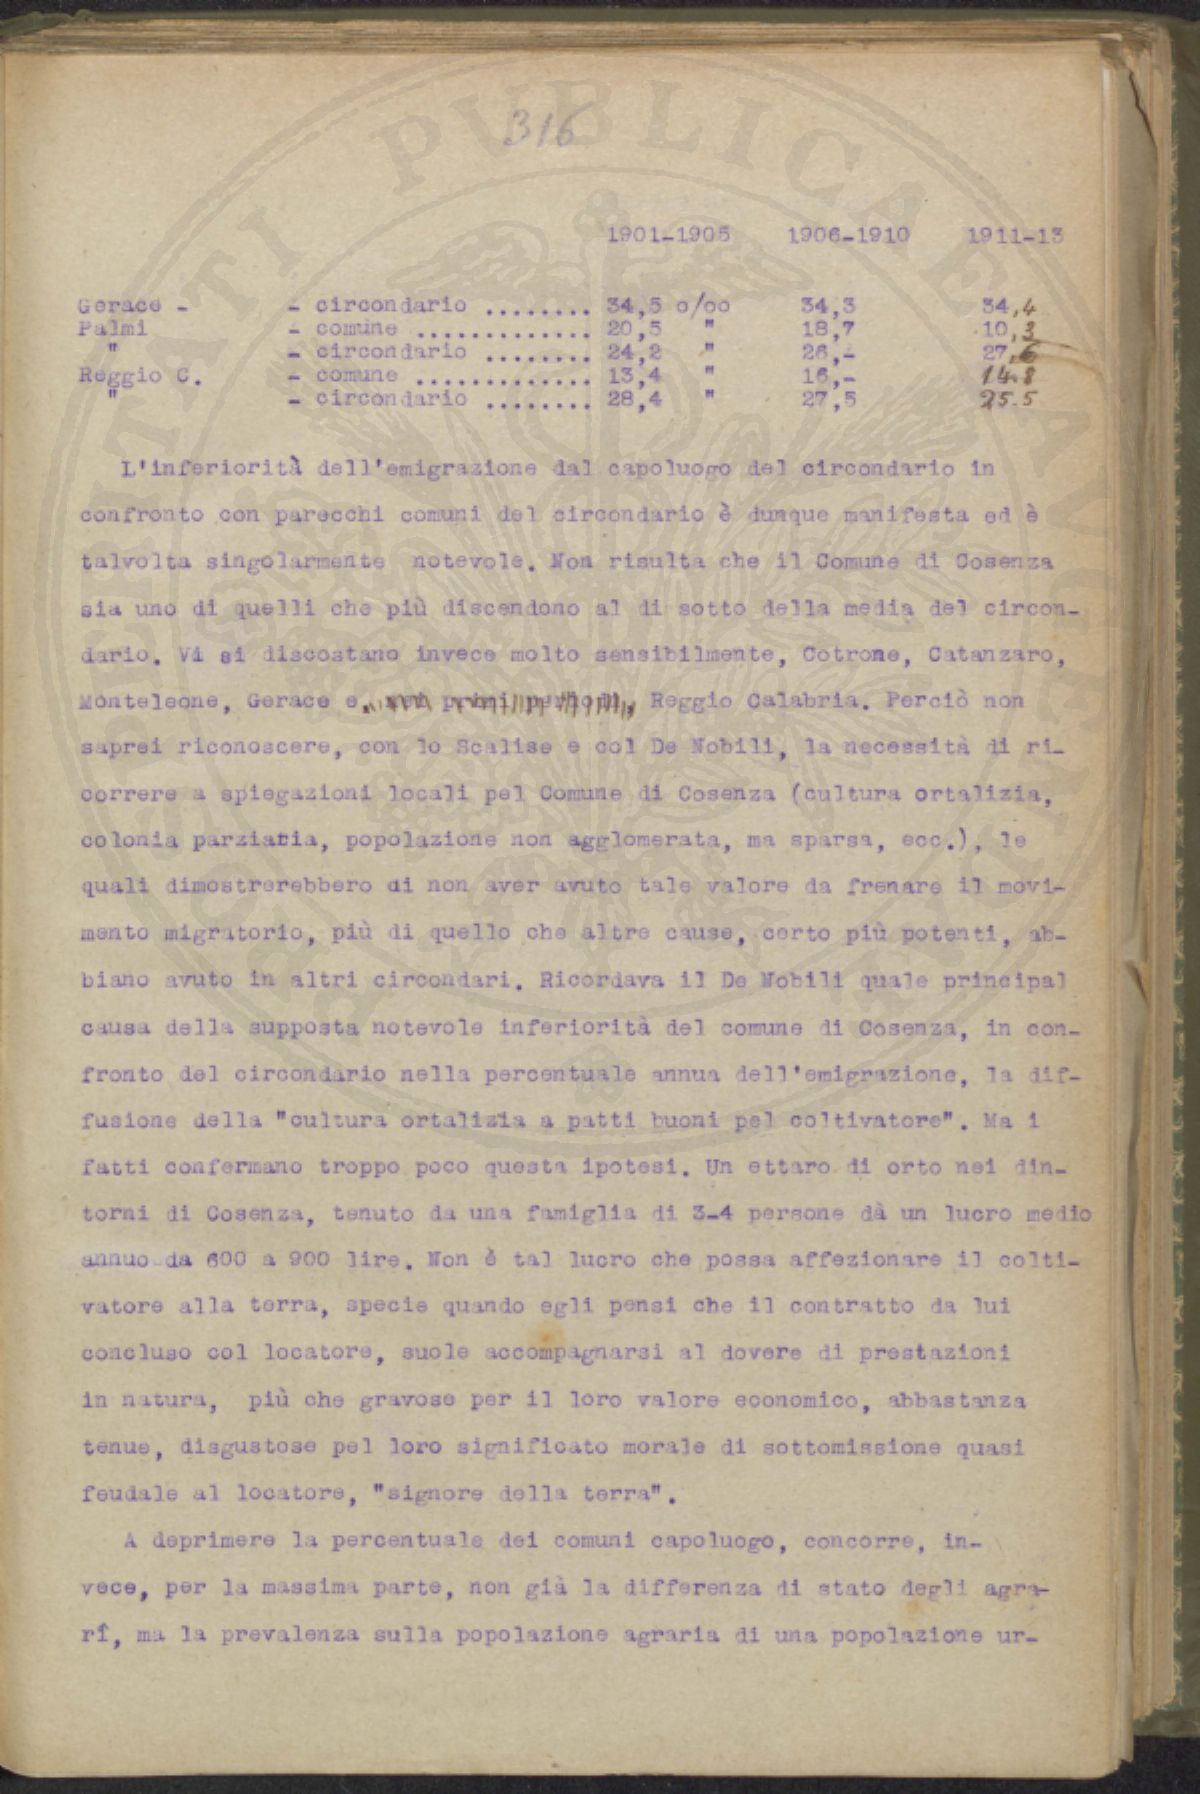 316
1901-1905 1906-1910 1911-13
Gerace - - circondario ........ 34,5 o/oo 34,3 34,4
Palmi - comune ............. 20,5 " 18,7 10,3
" - circondario ........ 24,2 " 26,- 27,6
Reggio C. - comune ............. 13,4 " 16,- 14.8
" - circondario ........ 28,4 " 27,5 25.5
L'inferiorità dell'emigrazione dal capoluogo del circondario in
confronto con parecchi comuni del circondario è dunque manifesta ed è
talvolta singolarmente notevole. Non risulta che il Comune di Cosenza
sia uno di quelli che più discendono al di sotto della media del circon-
dario. Vi si discostano invece molto sensibilmente, Cotrone, Catanzaro,
Monteleone, Gerace e, nei primi periodi, Reggio Calabria. Perciò non
saprei riconoscere, con lo Scalise e col De Nobili, la necessità di ri-
correre a spiegazioni locali pel Comune di Cosenza (cultura ortalizia,
colonia parziaria, popolazione non agglomerata, ma sparsa, ecc.), le
quali dimostrerebbero di non aver avuto tale valore da frenare il movi-
mento migratorio, più di quello che altre cause, certo più potenti, ab-
biano avuto in altri circondari. Ricordava il De Nobili quale principal
causa della supposta notevole inferiorità del comune di Cosenza, in con-
fronto del circondario nella percentuale annua dell'emigrazione, la dif-
fusione della "cultura ortalizia a patti buoni pel coltivatore". Ma i
fatti confermano troppo poco questa ipotesi. Un ettaro di orto nei din-
torni di Cosenza, tenuto da una famiglia di 3-4 persone dà un lucro medio
annuo da 600 a 900 lire. Non è tal lucro che possa affezionare il colti-
vatore alla terra, specie quando egli pensi che il contratto da lui
concluso col locatore, suole accompagnarsi al dovere di prestazioni
in natura, più che gravose per il loro valore economico, abbastanza
tenue, disgustose pel loro significato morale di sottomissione quasi
feudale al locatore, "signore della terra".
A deprimere la percentuale dei comuni capoluogo, concorre, in-
vece, per la massima parte, non già la differenza di stato degli agra-
rî, ma la prevalenza sulla popolazione agraria di una popolazione ur-